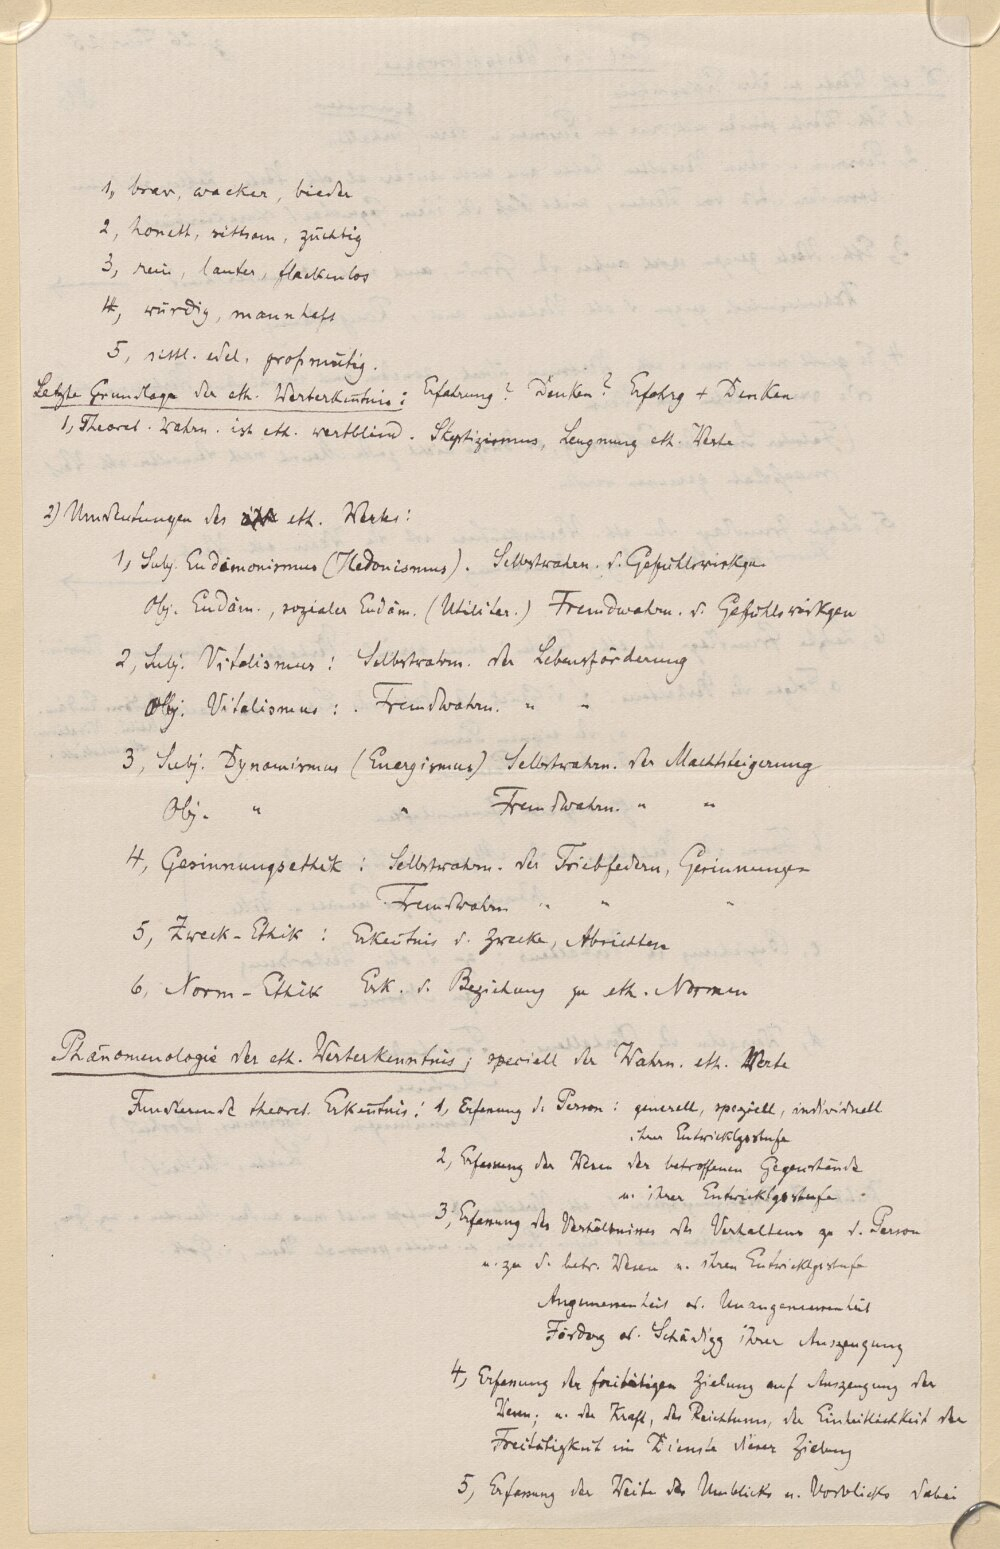 1, brav, wacker, bieder
2, honett, sittsam, züchtig
3, rein, lauter, fleckenlos
4, würdig, mannhaft
5, sittl. edel, großmütig.
Letzte Grundlage der eth. Werterkentnis: Erfahrung? Denken? Erfahrg + Denken
1, Theoret. Wahrn. ist eth. wertblind. Skeptizismus, Leugnung eth. Werte
2) Umdeutungen des eth. Wertes:
1, Subj. Eudämonismus (Hedonismus). Selbstwahrn. d. Gefühlswirkgn
Obj. Eudäm., sozialer Eudäm. (Utilitar.) Fremdwahrn. d. Gefühlswirkgen
2, Subj. Vitalismus: Selbstwahrn. der Lebensförderung
Obj. Vitalismus: Fremdwahrn. " "
3, Subj. Dynamismus (Energismus) Selbstwahrn. der Machtsteigerung
Obj. " " Fremdwahrn. " "
4, Gesinnungsethik: Selbstwahrn. der Triebfedern, Gesinnungen
Fremdwahrn " " "
5, Zweck-Ethik: Erkentnis d. Zwecke, Absichten
6, Norm-Ethik Erk. d. Beziehung zu eth. Normen
Phänomenologie der eth. Werterkenntnis; speciell der Wahrn. eth. Werte
Fundierende theoret. Erkentnis: 1, Erfassung d. Person: generell, speziell, individuell
ihrer Entwicklgsstufe
2, Erfassung der Wesen der betroffenen Gegenstände
u. ihrer Entwicklgsstufe
3, Erfassung des Verhältnisses des Verhaltens zu d. Person
u. zu d. betr. Wesen u. ihren Entwicklgsstufe
Angemessenheit od. Unangemessenheit
Förderg od. Schädigg ihrer Auszeugung
4, Erfassung der freitätigen Zielung auf Auszeugung der
Wesen; u. der Kraft, des Reichtums, der Einheitlichkeit der
Freitätigkeit im Dienste dieser Zielung
5, Erfassung der Weite des Umblicks u. Vorblicks dabei